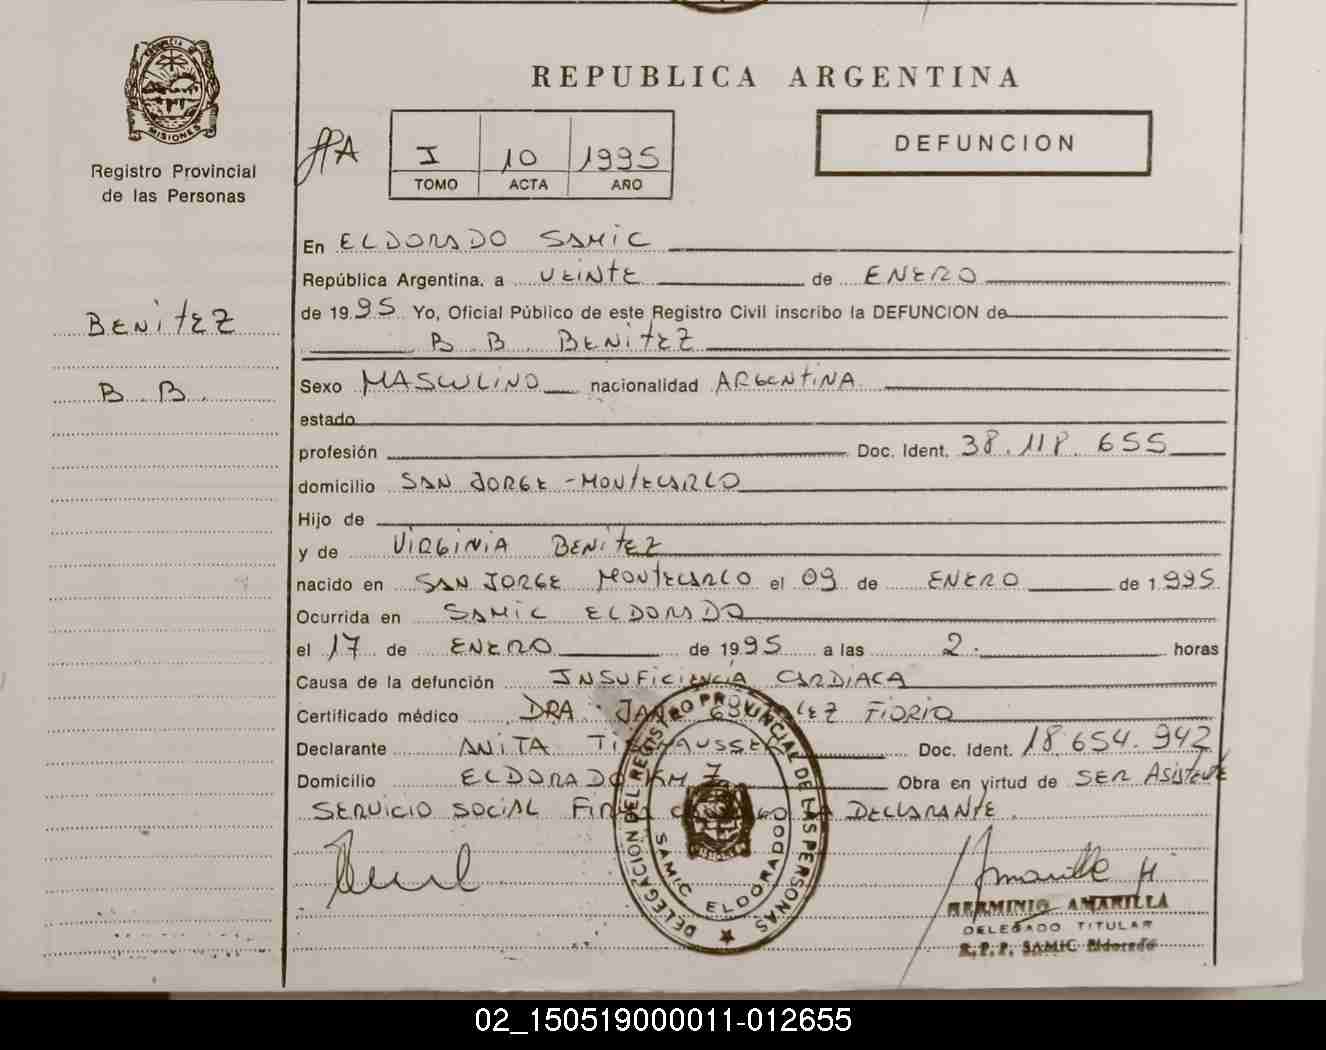 REPUBLICA ARGENTINA
PROVINCIA DE
MISIONES
Registro Provincial
de las Personas
I 10 1995
TOMO ACTA AÑO
DEFUNCION
BENITEZ
B. B.
En ELDORADO SAMIC
República Argentina, a VEINTE de ENERO
de 1995 Yo, Oficial Público de este Registro Civil inscribo la DEFUNCION de
B. B. BENITEZ
Sexo MASCULINO nacionalidad ARGENTINA
estado
profesión Doc. Ident. 38.118.655
domicilio SAN JORGE - MONTECARLO
Hijo de
y de VIRGINIA BENITEZ
nacido en SAN JORGE MONTECARLO el 09 de ENERO de 1.995
Ocurrida en SAMIC ELDORADO
el 17 de ENERO de 1995 a las 2. horas
Causa de la defunción INSUFICIENCIA CARDIACA
Certificado médico DRA. FIORIO
Declarante ANITA Doc. Ident. 18.654.942
Domicilio ELDORADO KM 7 Obra en virtud de SER ASISTENTE
SERVICIO SOCIAL LA DECLARANTE.
DELEGACION DEL REGISTRO PROVINCIAL DE LAS PERSONAS
SAMIC ELDORADO
HERMINIO AMARILLA
DELEGADO TITULAR
R.P.P. SAMIC Eldorado
02_150519000011-012655